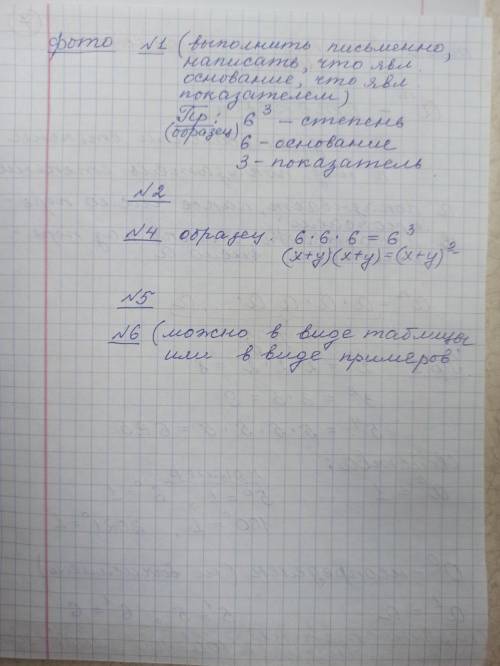 фото №1 (выполнить письменно,
написать, что явл
основание, что явл
показателем)
Пр: 6³ – степень
(образец) 6 - основание
3 - показатель
№2
№4 образец. 6·6·6 = 6³
(x+y)(x+y)=(x+y)²
№5
№6 (можно в виде таблицы
или в виде примеров